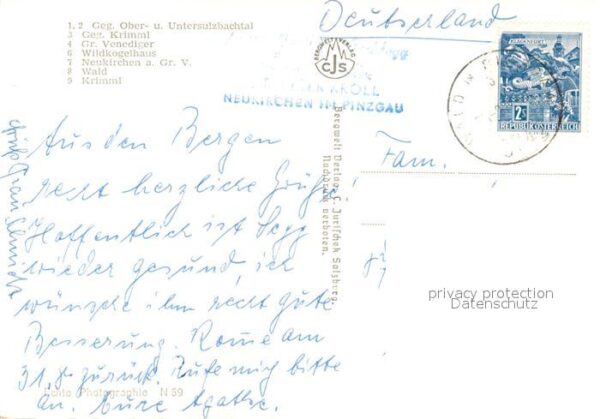 1, 2 Geg. Ober- u. Untersulzbachtal
3 Geg. Krimml
4 Gr. Venediger
6 Wildkogelhaus
7 Neukirchen a. Gr. V.
8 Wald
9 Krimml
Deutschland
BERGWELT-VERLAG
CJS
KROLL
NEUKIRCHEN IM PINZGAU
2 S
REPUBLIK ÖSTERREICH
Aus den Bergen
recht herzliche Grüße!
Hoffentlich ist
wieder gesund, ich
wünsche ihm recht gute
Besserung. Komme am
31. zurück. Rufe mich bitte
an. Eure Agathe.
Fam.
Bergwelt Verlag C. Jurischek Salzburg.
Nachdruck verboten.
Echte Photographie N 59
privacy protection
Datenschutz